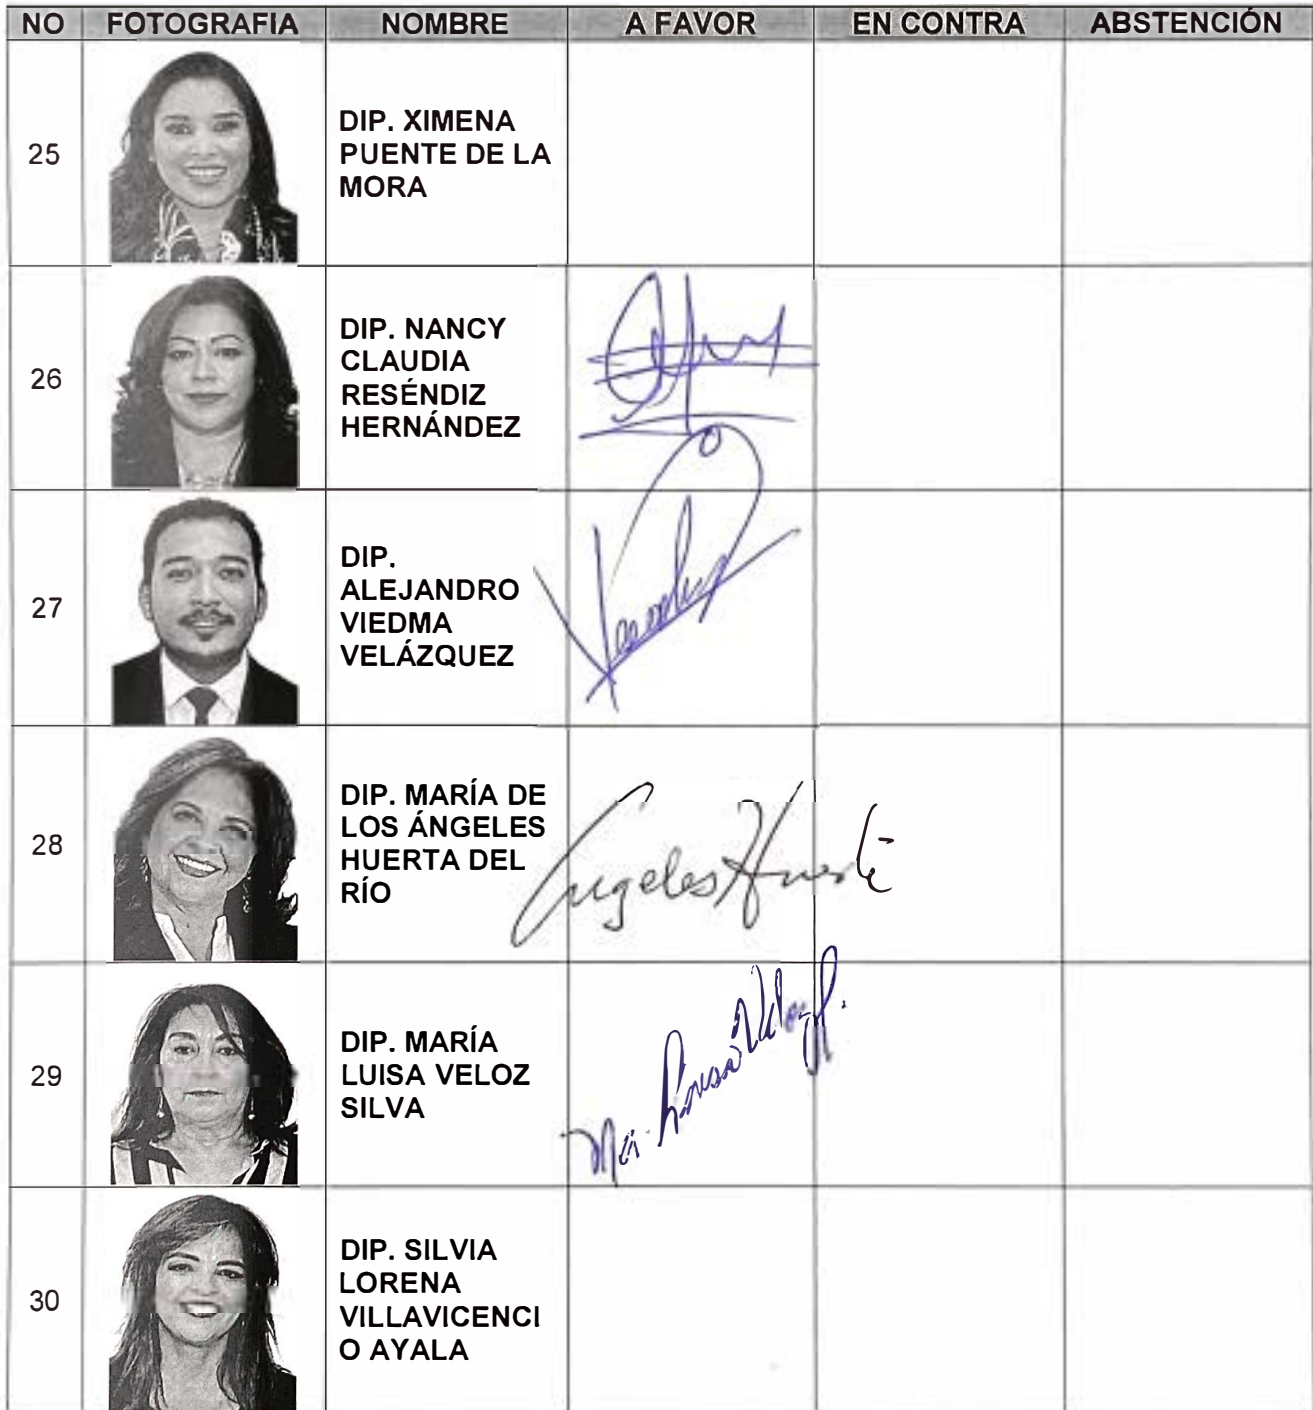 NO FOTOGRAFIA NOMBRE A FAVOR EN CONTRA ABSTENCIÓN
25
DIP. XIMENA
PUENTE DE LA
MORA
26
DIP. NANCY
CLAUDIA
RESÉNDIZ
HERNÁNDEZ
27
DIP.
ALEJANDRO
VIEDMA
VELÁZQUEZ
28
DIP. MARÍA DE
LOS ÁNGELES
HUERTA DEL
RÍO
Angeles Huerta
29
DIP. MARÍA
LUISA VELOZ
SILVA
Ma. Luisa Veloz S.
30
DIP. SILVIA
LORENA
VILLAVICENCI
O AYALA